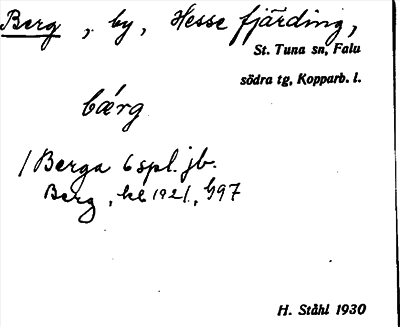 Berg, by, Hesse fjärding,
St. Tuna sn, Falu
södra tg, Kopparb. l.
bærg
/ Berga 6 spl. jb.
Berg, kb 1921, 597
H. Ståhl 1930